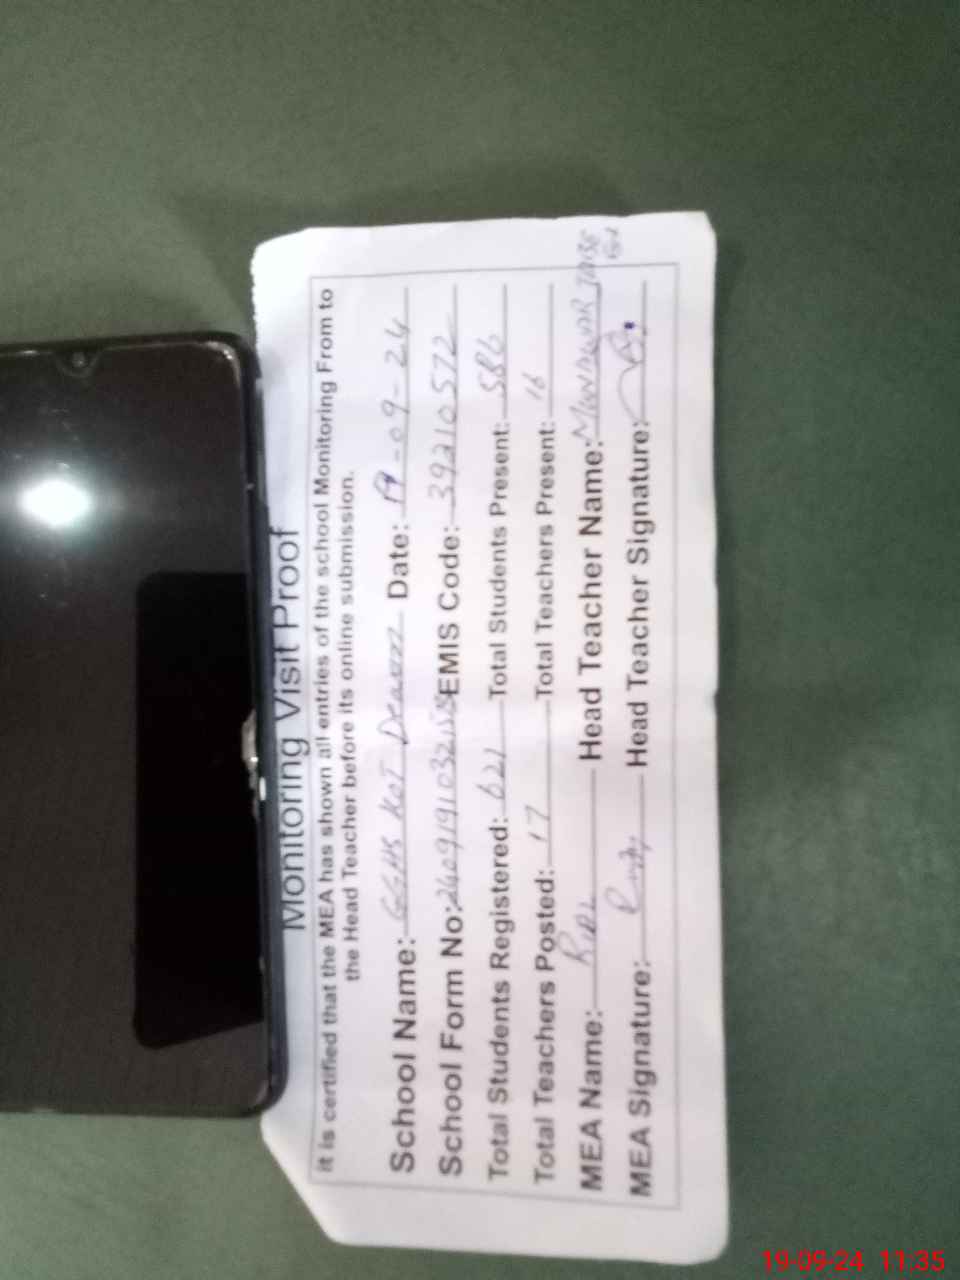 Monitoring Visit Proof
it is certified that the MEA has shown all entries of the school Monitoring From to
the Head Teacher before its online submission.
School Name: GGHS KOT Date: 19-09-24
School Form No: EMIS Code: 39210572
Total Students Registered: 621 Total Students Present: 586
Total Teachers Posted: 17 Total Teachers Present: 16
MEA Name: Head Teacher Name:
MEA Signature: Head Teacher Signature:
19-09-24 11:35